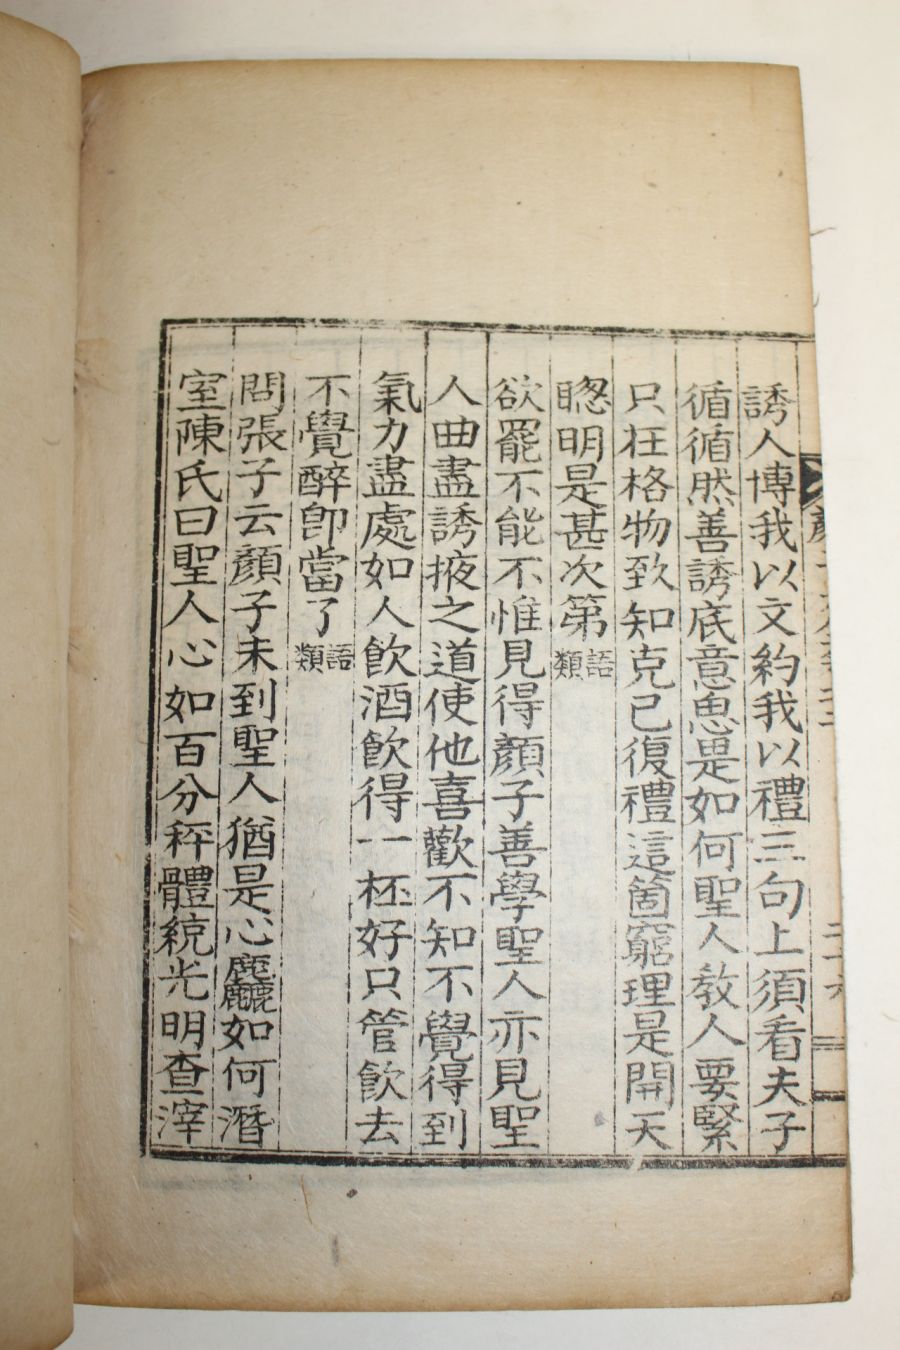 誘人博我以文約我以禮三句上須看夫子
循循然善誘底意思畢如何聖人敎人要緊
只在格物致知克己復禮這箇窮理是開天
聦明是甚次第語類
欲罷不能不惟見得顏子善學聖人亦見聖
人曲盡誘掖之道使他喜歡不知不覺得到
氣力盡處如人飮酒飮得一杯好只管飮去
不覺醉卽當了語類
問張子云顏子未到聖人猶是心麤如何潛
室陳氏曰聖人心如百分秤體統光明査滓